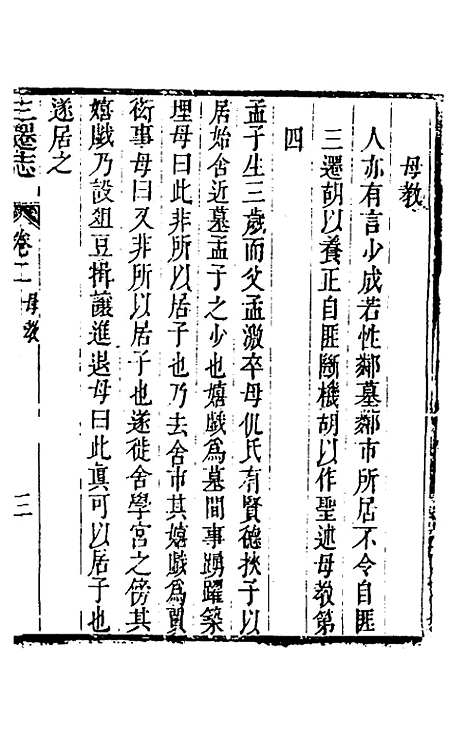 母教
人亦有言少成若性鄰墓鄰市所居不令自匪
三遷胡以養正自匪斷機胡以作聖述母教第
四
孟子生三歲而父孟激卒母仉氏有賢德挾子以
居始舍近墓孟子之少也嬉戲為墓間事踴躍築
埋母曰此非所以居子也乃去舍市其嬉戲為賈
衒事母曰又非所以居子也遂徙舍學宮之傍其
嬉戲乃設俎豆揖讓進退母曰此真可以居子也
遂居之
三遷志 卷二 母教 三